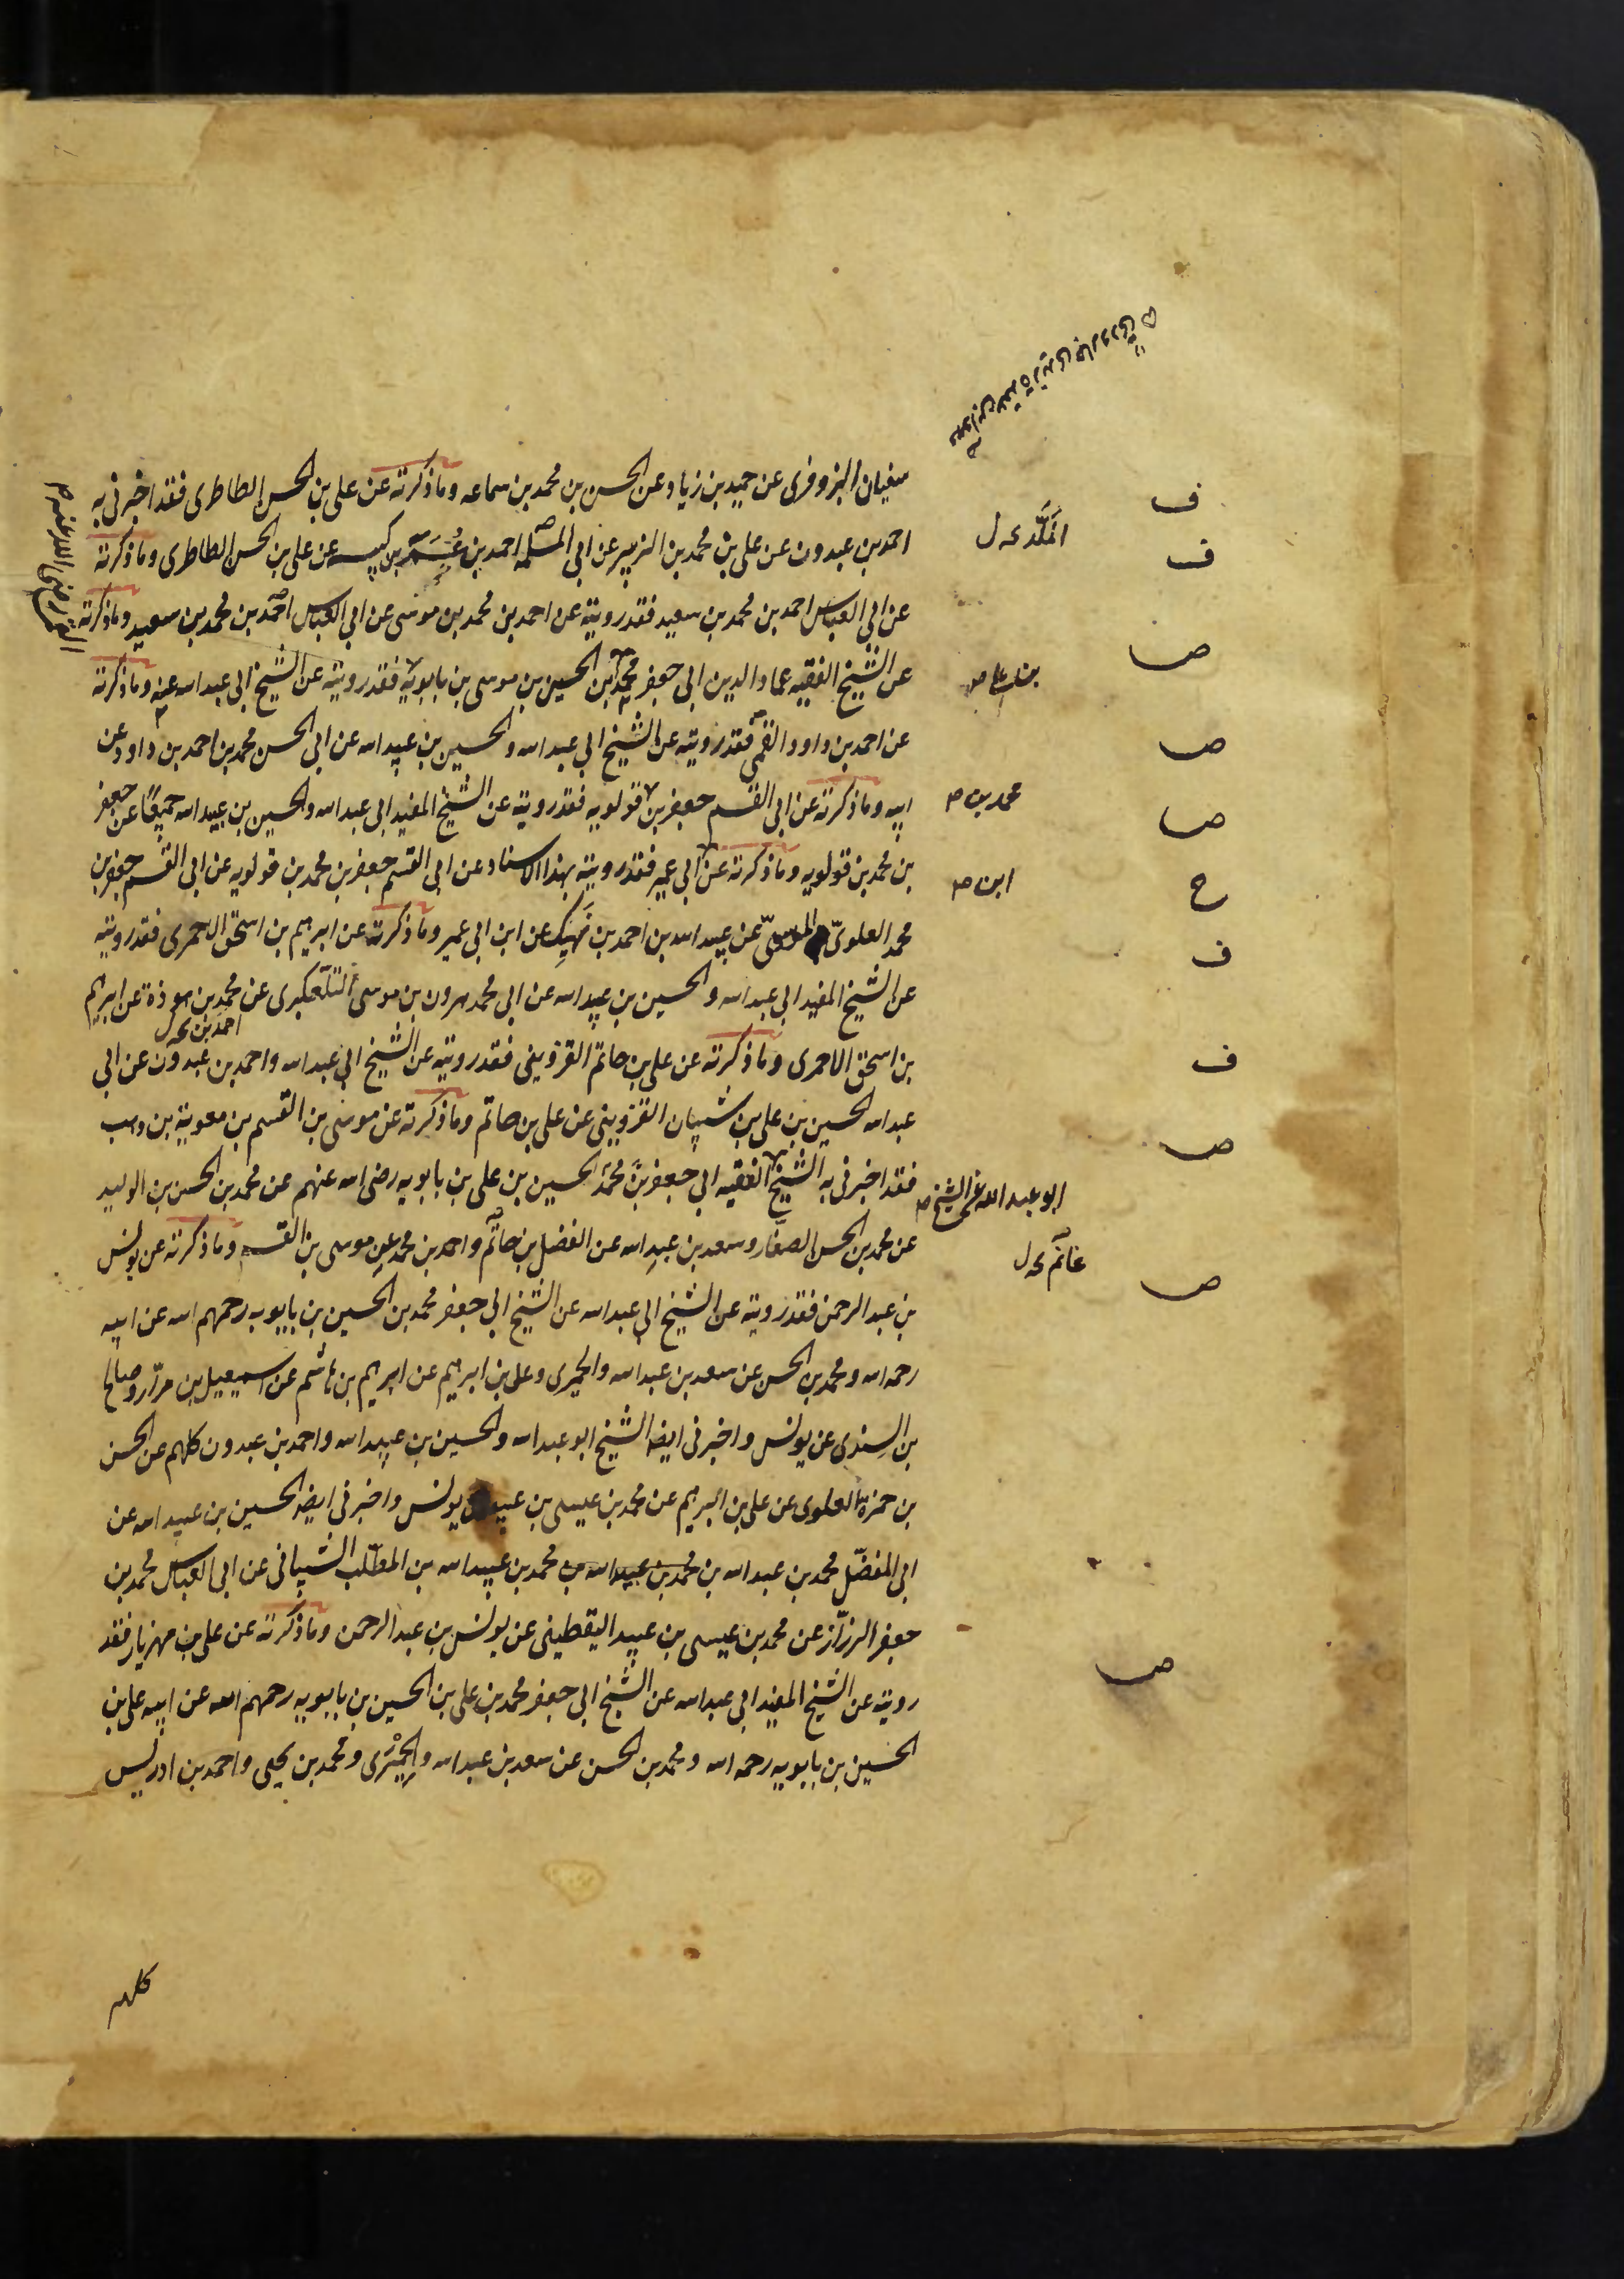 سفيان البزوفرى عن حميد بن زياد عن الحسن بن محمد بن سماعه وما ذكرته عن على بن الحسن الطاطرى فقد اخبرنى به
احمد بن عبدون عن على بن محمد بن الزبير عن ابى الملكه احمد بن عمر بن كيسبه عن على بن الحسن الطاطرى وما ذكرته
عن ابى العباس احمد بن محمد بن سعيد فقد رويته عن احمد بن محمد بن موسى عن ابى العباس احمد بن محمد بن سعيد وما ذكرته
عن الشيخ الفقيه عماد الدين ابى جعفر محمد بن الحسين بن موسى بن بابويه فقد رويته عن الشيخ ابى عبد الله عنه وما ذكرته
عن احمد بن داود القمى فقد رويته عن الشيخ ابى عبد الله والحسين بن عبيد الله عن ابى الحسن محمد بن احمد بن داود عن
ابيه وما ذكرته عن ابى القسم جعفر بن قولويه فقد رويته عن الشيخ المفيد ابى عبد الله والحسين بن عبيد الله جميعًا عن جعفر
بن محمد بن قولويه وما ذكرته عن ابى عمير فقد رويته بهذا الاسناد عن ابى القسم جعفر بن محمد بن قولويه عن ابى القسم جعفر بن
محمد العلوىّ الموسىّ عن عبيد الله بن احمد بن نَهِيك عن ابن ابى عمير وما ذكرته عن ابرهيم بن اسحق الاحمرى فقد رويته
عن الشيخ المفيد ابى عبد الله والحسين بن عبيد الله عن ابى محمد هرون بن موسى التلّعكبرى عن محمد بن هوذة عن ابرهيم
احمد بن
بن اسحق الاحمرى وما ذكرته عن على بن حاتم القزوينى فقد رويته عن الشيخ ابى عبد الله واحمد بن عبدون عن ابى
عبد الله الحسين بن على بن شيبان القزوينى عن على بن حاتم وما ذكرته عن موسى بن القسم بن معوية بن وهب
فقد اخبرنى به الشيخ الفقيه ابى جعفر بن محمد الحسين بن على بن بابويه رضى الله عنهم عن محمد بن الحسن بن الوليد
عن محمد بن الحسن الصفّار وسعد بن عبد الله عن الفضل بن حاتم واحمد بن محمد عن موسى بن القسم وما ذكرته عن يونس
بن عبد الرحمن فقد رويته عن الشيخ ابى عبد الله عن الشيخ ابى جعفر محمد بن الحسين بن بابويه رحمهم الله عن ابيه
رحمه الله ومحمد بن الحسن عن سعد بن عبد الله والحميرى وعلى بن ابرهيم عن ابرهيم بن هاشم عن اسمعيل بن مرّار وصالح
بن السندى عن يونس واخبرنى ايضا الشيخ ابو عبد الله والحسين بن عبيد الله واحمد بن عبدون كلهم عن الحسن
بن حمزة العلوى عن على بن ابرهيم عن محمد بن عيسى بن عبيد يونس واخبرنى ايضا الحسين بن عبيد الله عن
ابى المفضّل محمد بن عبد الله بن محمد بن عبيد الله بن محمد بن عبيد الله بن المطّلب الشيبانى عن ابى العباس محمد بن
جعفر الرزّاز عن محمد بن عيسى بن عبيد اليقطينى عن يونس بن عبد الرحمن وما ذكرته عن على بن مهزيار فقد
رويته عن الشيخ المفيد ابى عبد الله عن الشيخ ابى جعفر محمد بن على بن الحسين بن بابويه رحمهم الله عن ابيه على بن
الحسين بن بابويه رحمه الله ومحمد بن الحسن عن سعد بن عبد الله والحِمْيَرى ومحمد بن يحيى واحمد بن ادريس
كلهم
ف
ف
ص
ص
ص
ح
ف
ف
ص
ص
ص
بن على ص
محمد بن ص
ابن ص
ابو عبد الله عن الشيخ ص
غانم